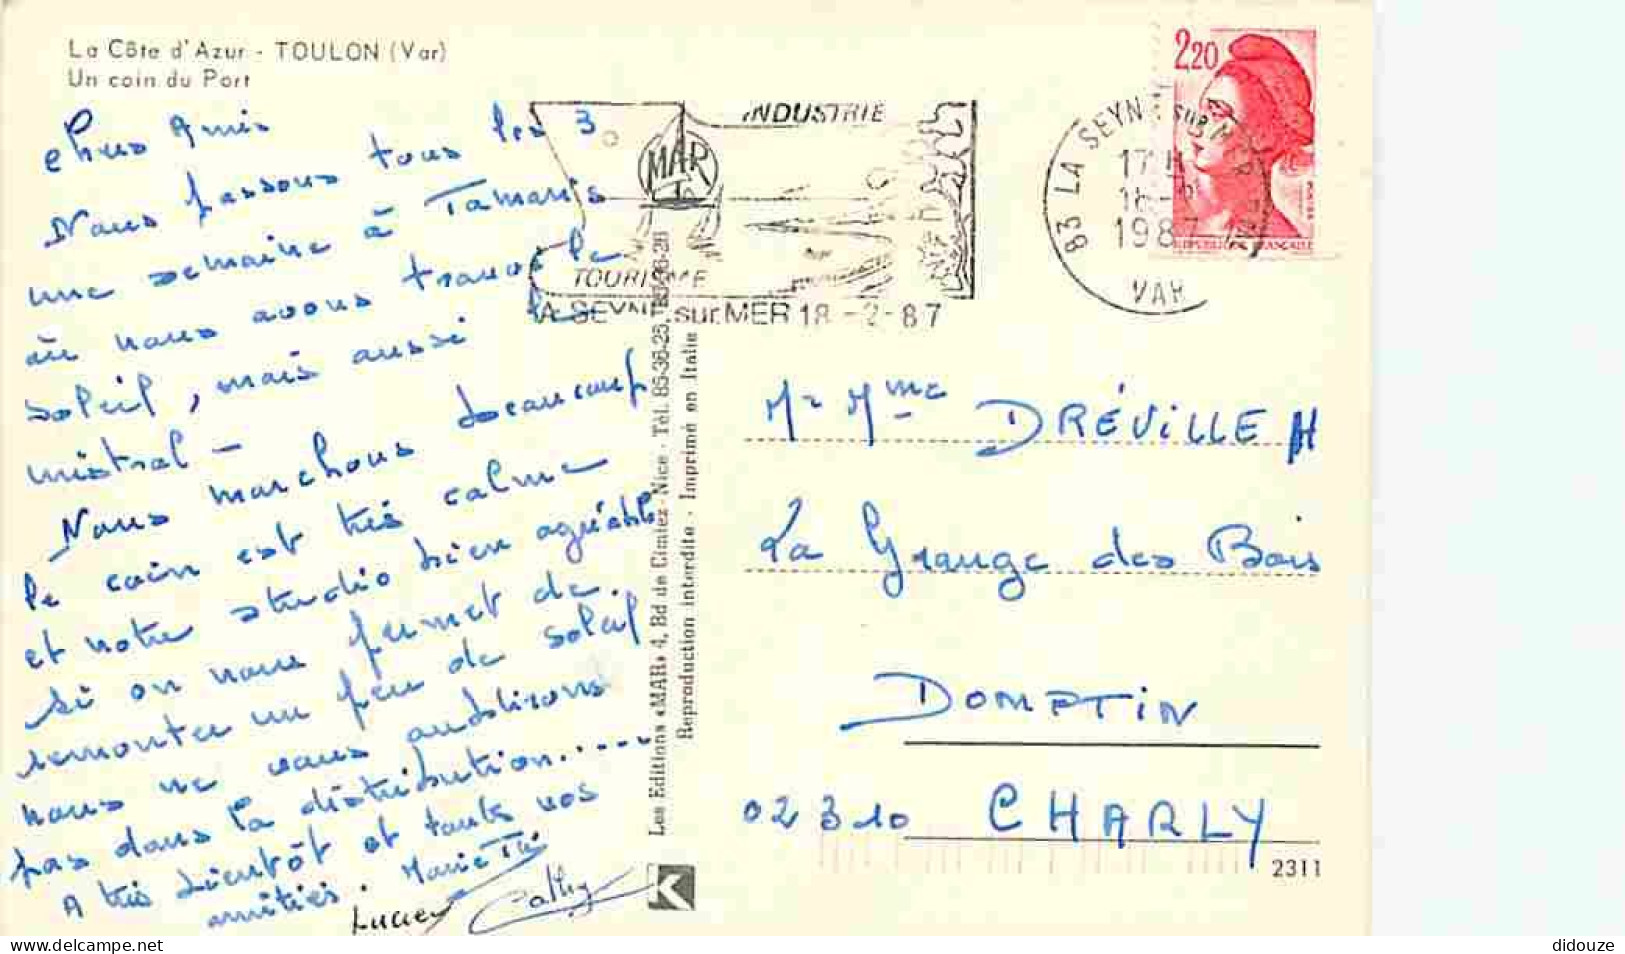 La Côte d'Azur - TOULON (Var)
Un coin du Port
chers Amis
Nous passons tous les 3
une semaine à Tamaris
où nous avons trouvé le
soleil, mais aussi le
mistral -
Nous marchons beaucoup
le coin est très calme
et notre studio bien agréable
Si on nous permet de
remonter un peu de soleil
nous ne vous oublierons
pas dans la distribution.....
A très bientôt et toutes nos
amitiés. Marie Thé
Lucien Cathy
Les Editions «MAR» 4, Bd de Cimiez - Nice - Tél. 85-36-28
Reproduction interdite - Imprimé en Italie
INDUSTRIE
MAR
TOURISME
LA SEYNE sur MER 18 -2-87
83 LA SEYNE SUR MER
17 H
18 -2
1987
VAR
2,20
REPUBLIQUE FRANCAISE
Mr Mme DRÉVILLE H
La Grange des Bois
DOMPTIN
02310 CHARLY
2311
K
www.delcampe.net
didouze